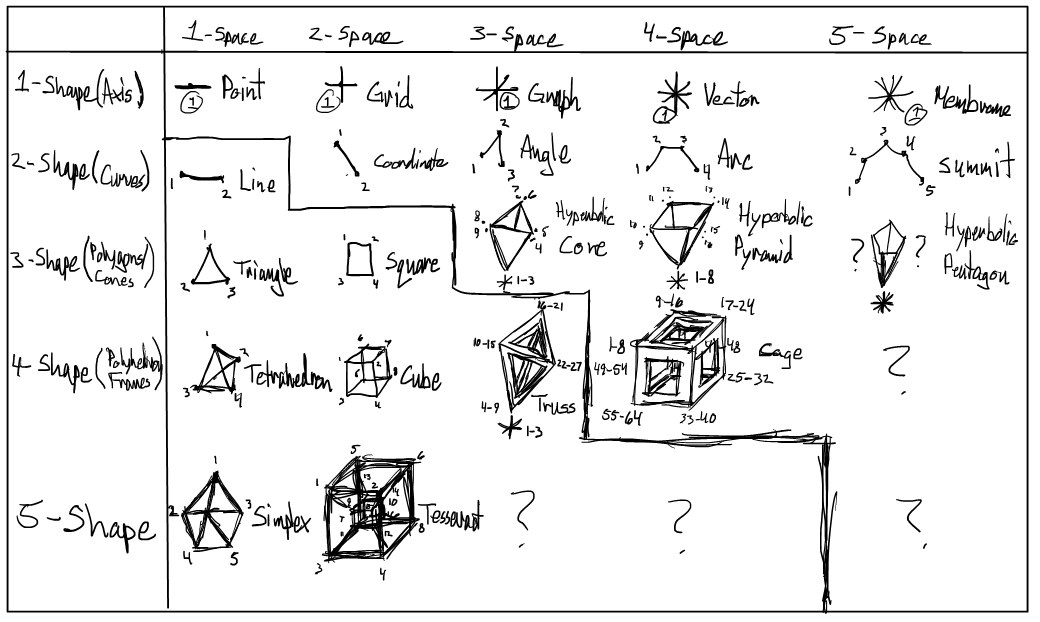 1-Space 2-Space 3-Space 4-Space 5-Space
1-Shape (Axis) 1 Point 1 Grid 1 Graph 1 Vector 1 Membrane
2-Shape (Curves) 1 2 Line 1 2 Coordinate 1 2 3 Angle 1 2 3 4 Arc 1 2 3 4 5 Summit
3-Shape (Polygons/
Cones) 1 2 3 Triangle 1 2 3 4 Square 7 6 8 9 5 4 1-3 Hyperbolic
Cone 12 13 11 14 10 15 9 16 1-8 Hyperbolic
Pyramid ? ? Hyperbolic
Pentagon
4-Shape (Polyhedron/
Frames) 1 2 3 4 Tetrahedron 6 7 1 2 8 3 4 Cube 16-21 10-15 22-27 4-9 1-3 Truss 9-16 17-24 1-8 41-48 49-54 25-32 55-64 33-40 Cage ?
5-Shape 1 2 3 4 5 Simplex 5 6 13 1 2 14 10 7 8 12 3 4 Tesseract ? ? ?